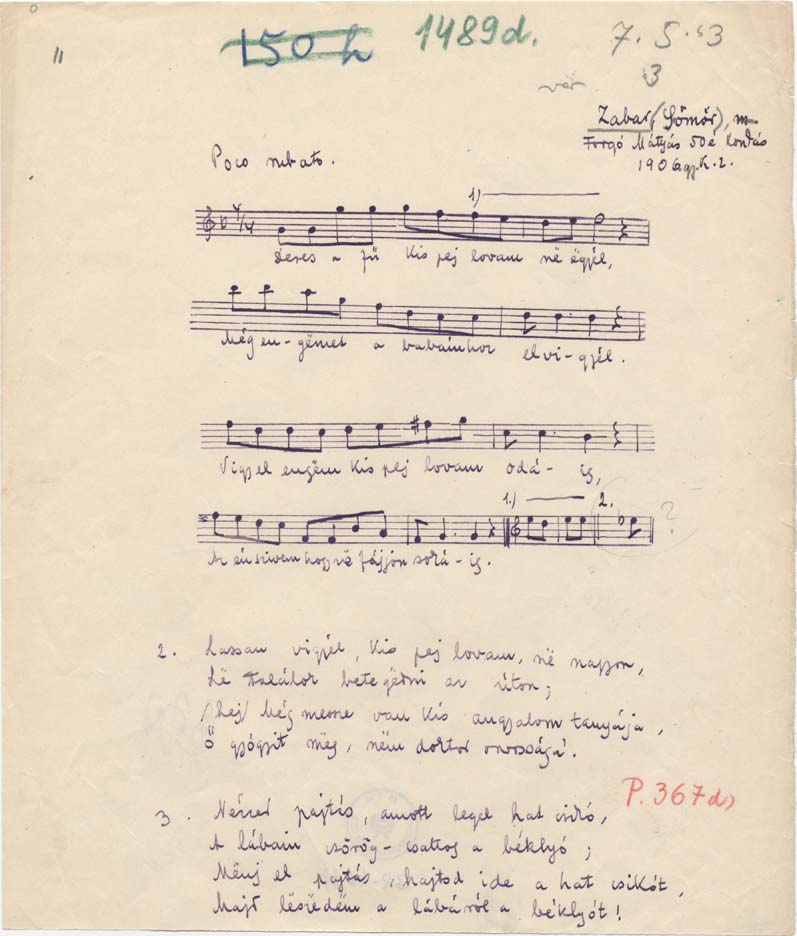 11
150 h
1489d.
7. 5. 63
3
Zabar (Sömör), m.
Forgó Mátyás 50 é Kondás
1906 gj. K. 2.
Poco rubato.
1)
Deres a fű Kis pej lovam në ëgyél,
Még en-gëmet a babámhoz elvi-gyél.
Vigyel engëm Kis pej lovam odá- ig,
1.) 2.
?
Az én szivem hogy në fájjon sorá-ig.
2. Lassan vigyél, Kis pej lovam, në nagyon,
Lë találok betegëdni az úton;
/hej/ Még messze van Kis angyalom tanyája,
Ő gyógyit mëg, nëm doktor orossága.
P. 367d)
3. Nézzed pajtás, amott legel hat csikó,
A lábain csörög-csattog a béklyó;
Mënj el pajtás, hajtsd ide a hat csikót,
Majd lëszëdëm a lábáról a béklyót!